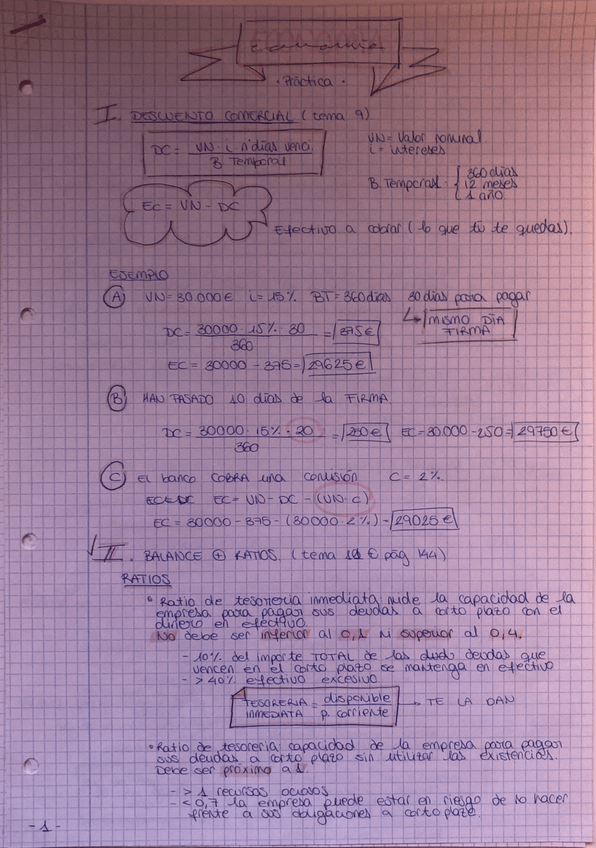 Economía
· Práctica ·
I. DESCUENTO COMERCIAL (tema 9)
DC = VN · i · nº días venci. / B Temporal
VN = Valor nominal
i = intereses
B. Temporal: { 360 días
12 meses
1 año
EC = VN - DC
Efectivo a cobrar (lo que tú te quedas).
EJEMPLO
(A) VN = 30.000€ i = 15% BT = 360 días 30 días para pagar
↳ MISMO DÍA FIRMA
DC = 30000 · 15% · 30 / 360 = 375€
EC = 30000 - 375 = 29625€
(B) HAN PASADO 10 días de la FIRMA
DC = 30000 · 15% · 20 / 360 = 250€ EC = 30.000 - 250 = 29750€
(C) El banco COBRA una comisión C = 2%
EC = VN - DC - (VN · c)
EC = 30000 - 375 - (30000 · 2%) = 29025€
II. BALANCE ⊕ RATIOS. (tema 10 pág 144)
RATIOS
• Ratio de tesorería inmediata mide la capacidad de la
empresa para pagar sus deudas a corto plazo con el
dinero en efectivo.
No debe ser inferior al 0,1 Ni superior al 0,4.
- 10% del importe TOTAL de las deudas que
vencen en el corto plazo se mantenga en efectivo
- > 40% efectivo excesivo
TESORERIA INMEDIATA = disponible / p. corriente → TE LA DAN
• Ratio de tesorería capacidad de la empresa para pagar
sus deudas a corto plazo sin utilizar las existencias.
Debe ser próximo a 1.
- > 1 recursos ociosos
- < 0,7 la empresa puede estar en riesgo de no hacer
frente a sus obligaciones a corto plazo.
- 1 -